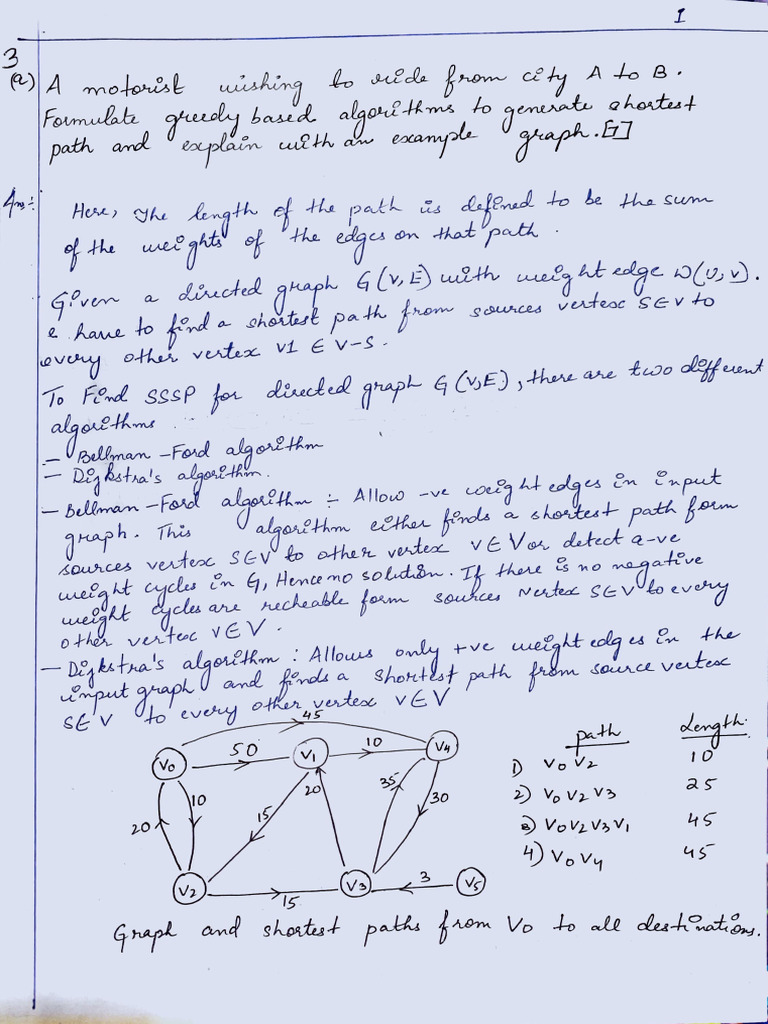 1
3
(a) A motorist wishing to ride from city A to B.
Formulate greedy based algorithms to generate shortest
path and explain with an example graph. [7]
Ans:- Here, The length of the path is defined to be the sum
of the weights of the edges on that path.
Given a directed graph G(V,E) with weight edge W(U,V).
e have to find a shortest path from sources vertex S∈V to
every other vertex V1 ∈ V-S.
To Find SSSP for directed graph G(V,E), there are two different
algorithms
- Bellman-Ford algorithm
- Dijkstra's algorithm.
- Bellman-Ford algorithm :- Allow -ve weight edges in input
graph. This algorithm either finds a shortest path form
sources vertex S∈V to other vertex V∈V or detect a -ve
weight cycles in G, Hence no solution. If there is no negative
weight cycles are recheable form sources vertex S∈V to every
other vertex V∈V.
- Dijkstra's algorithm : Allows only +ve weight edges in the
input graph and finds a shortest path from source vertex
S∈V to every other vertex V∈V
45
V0 50 V1 10 V4
20 10 15 20 35 30
V2 15 V3 3 V5
path Length
1) V0V2 10
2) V0V2V3 25
3) V0V2V3V1 45
4) V0V4 45
Graph and shortest paths from V0 to all destinations.